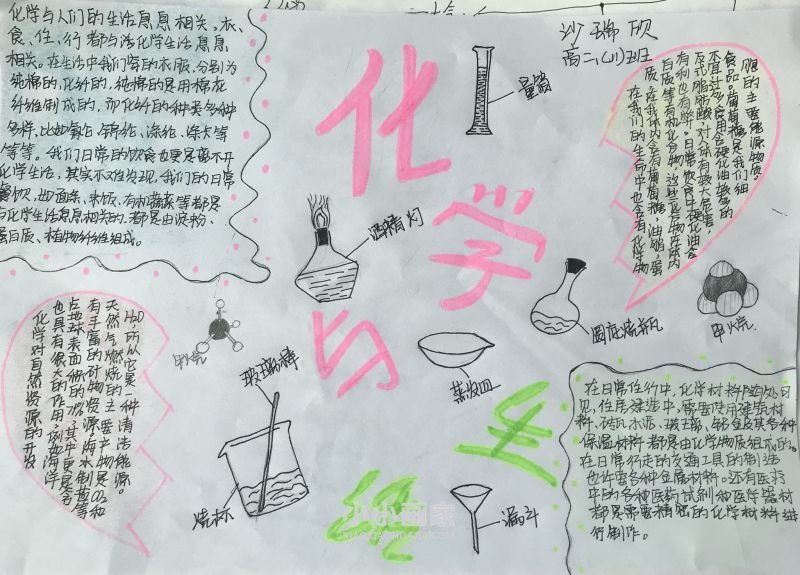 化学与人们的生活息息相关。衣、
食、住、行都与活化学生活息息
相关。在生活中我们穿的衣服,分别为
纯棉的,化纤的,纯棉的是用棉花
纤维制成的,而化纤的种类多种
多样,比如氯纶、锦纶、涤纶、
等等。我们日常的饮食也更是离不开
化学生活,其实不难发现,我们的日常
餐饮,如面条、米饭、有机蔬菜等都是
与化学生活息息相关的,都是由淀粉、
蛋白质、植物纤维组成。
沙瑞欣
高二(11)班
化
学
与
生
活
量筒
酒精灯
圆底烧瓶
甲烷
甲烷
蒸发皿
玻璃棒
烧杯
漏斗
胞的主要能源物质
食品。葡萄糖是我们细
不宜过多食用含氢化油较多的
反式脂肪酸对人体有较大危害,
有利也有害。日常饮食中氢化油含
白质等有机化合物,这些化合物在体内
质。在我们体内含有葡萄糖,油脂,蛋
在我们的生命中也含有化学物
H2O,所以它是一种清洁能源。
天然气燃烧的主要产物是CO2和
有丰富的矿物资源,海水制盐等
占地球表面积的70%,其中更是含
也具有很大的作用,例如海洋
化学对自然资源的开发
在日常住行中,化学材料随处可
见,住房建造中,需要使用建筑材
料,砖瓦水泥、玻璃、铝合金及各种
保温材料都是由化学物质组成的。
在日常行走的交通工具的制造
也许要各种金属材料。还有医疗
中的各种医药试剂和医疗器材
都是需要精密的化学材料进
行制作。
小小画家